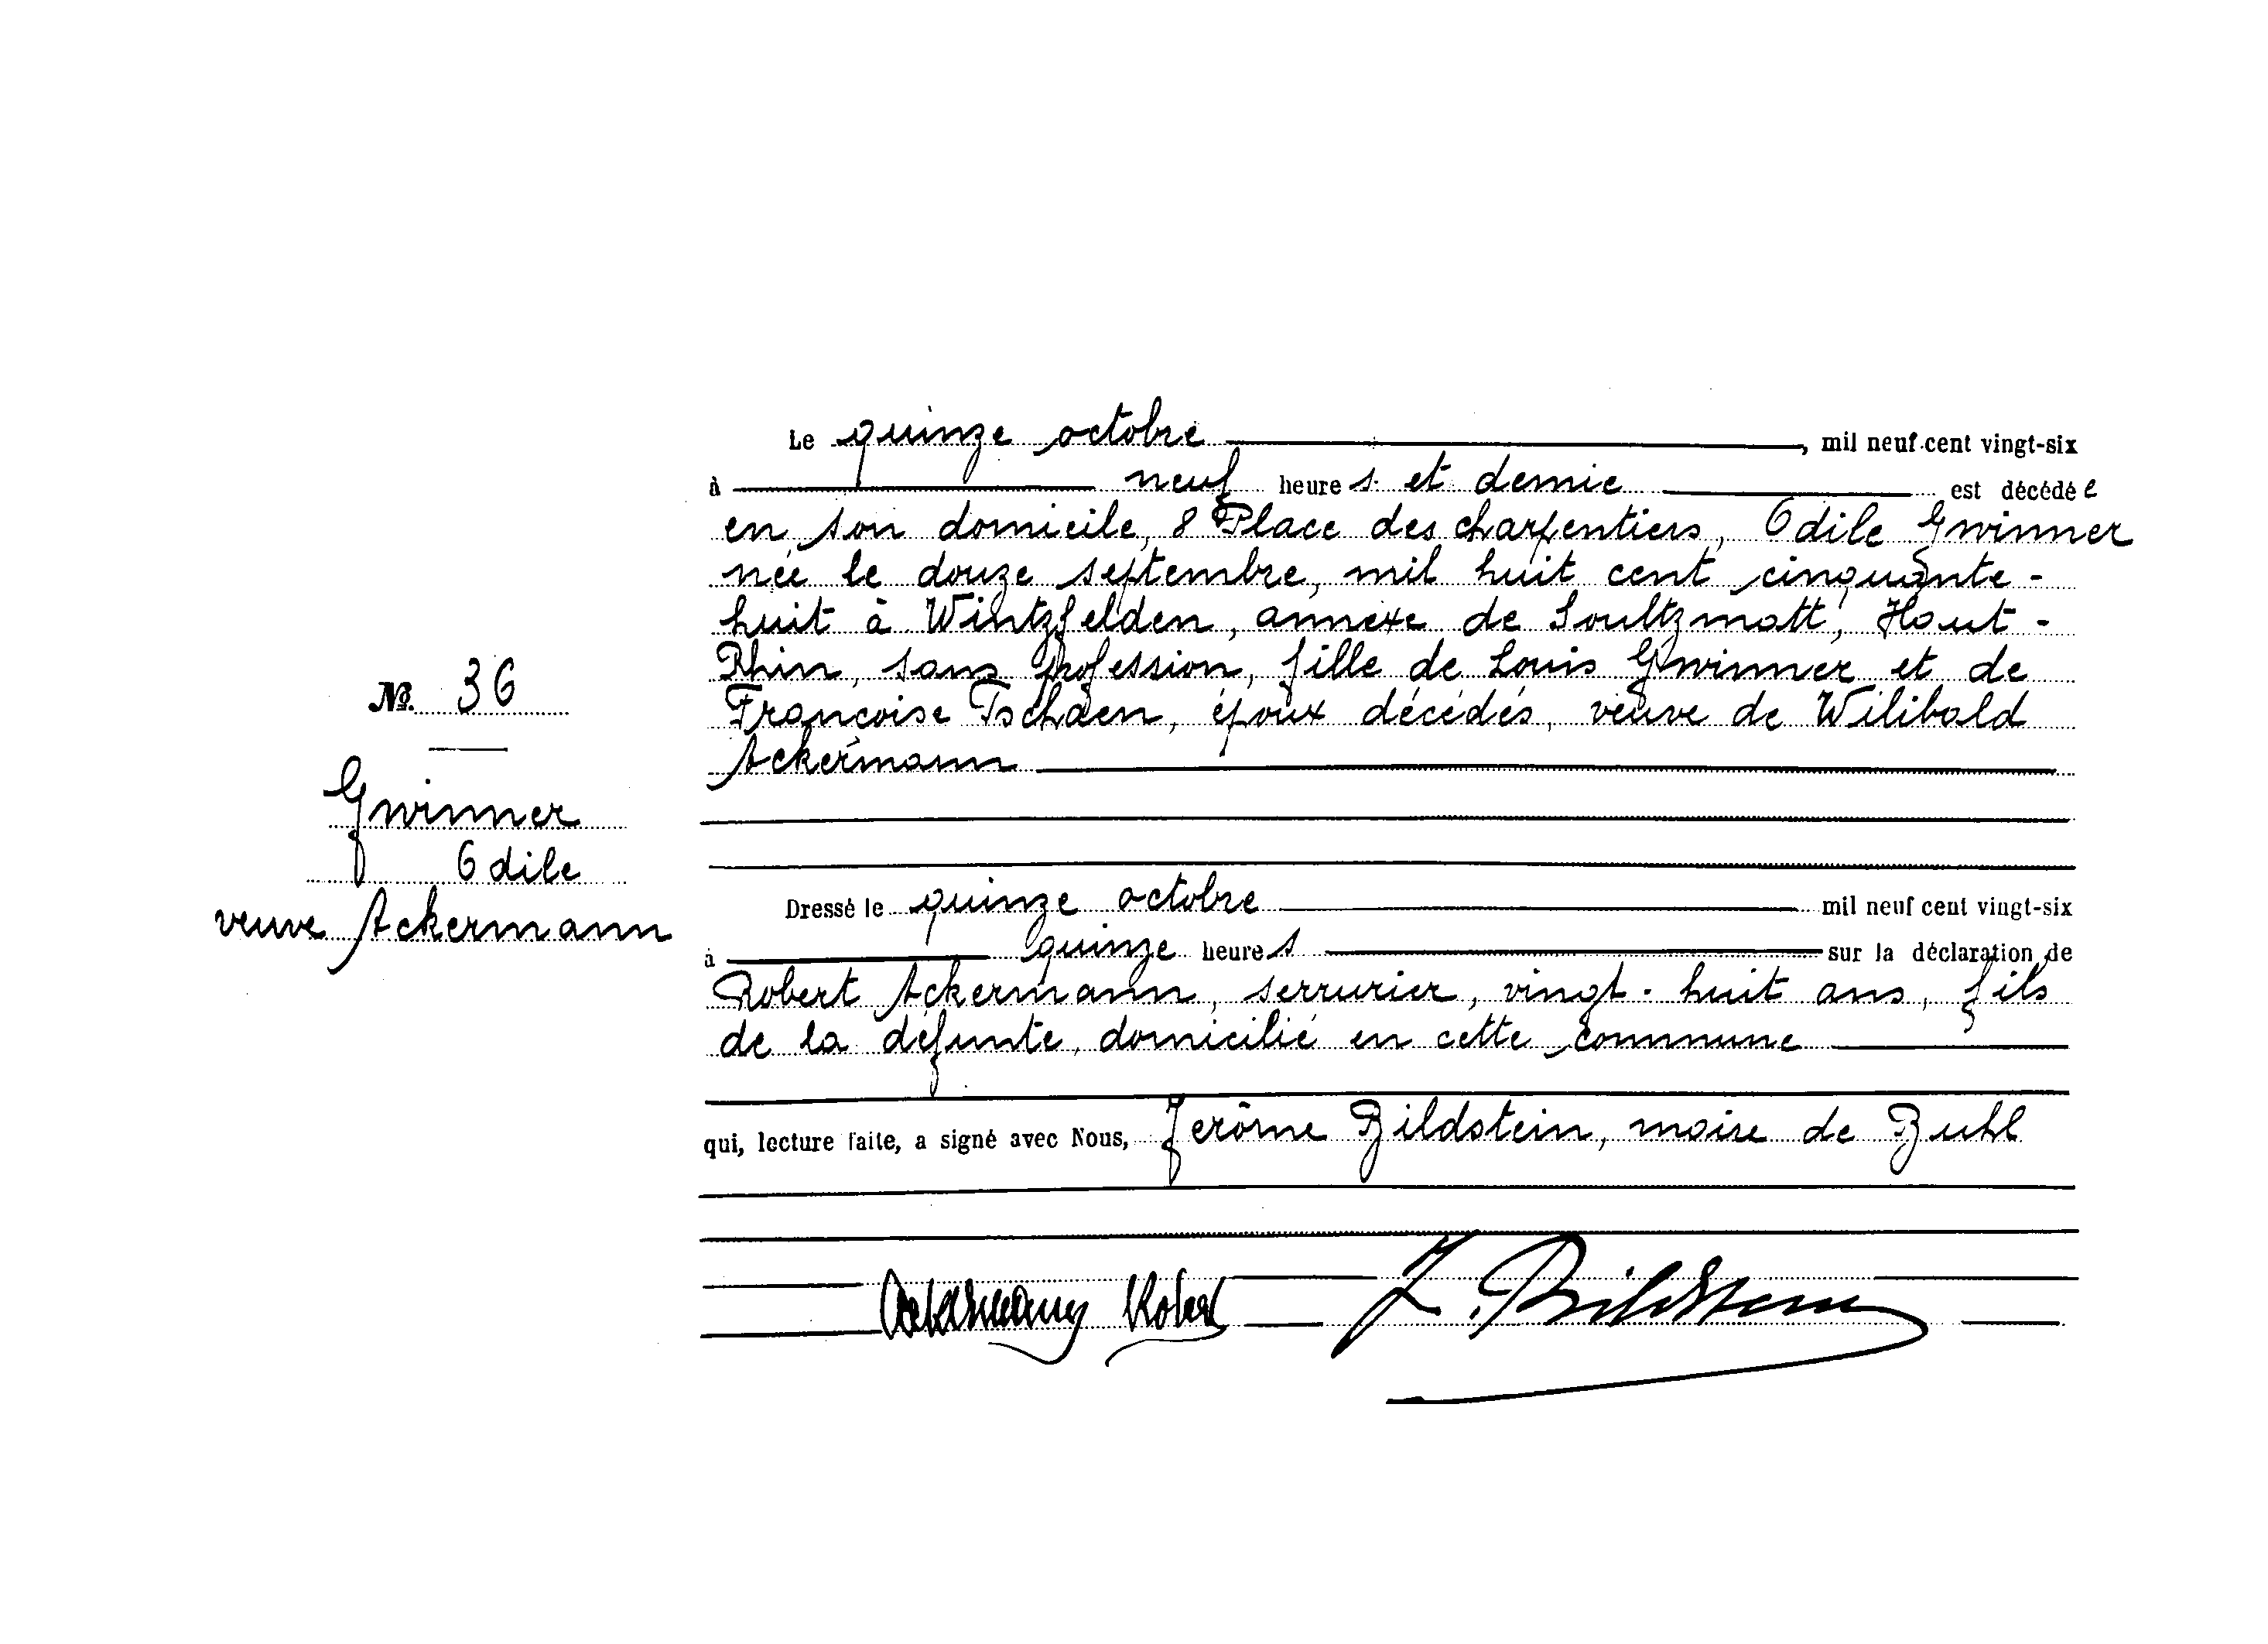 Le quinze octobre, mil neuf cent vingt-six
à neuf heures et demie est décédée
en son domicile, 8 Place des charpentiers, Odile Gwinner
née le douze septembre, mil huit cent cinquante-
huit à Wintzfelden, annexe de Soultzmatt, Haut-
Rhin, sans profession, fille de Louis Gwinner et de
Françoise Tschaen, époux décédés, veuve de Wilibald
Ackermann
No. 36
Gwinner
Odile
veuve Ackermann
Dressé le quinze octobre mil neuf cent vingt-six
à quinze heures sur la déclaration de
Robert Ackermann, serrurier, vingt-huit ans, fils
de la défunte, domicilié en cette commune
qui, lecture faite, a signé avec Nous, Jerôme Bildstein, maire de Buhl
Ackermann Robert J. Bildstein